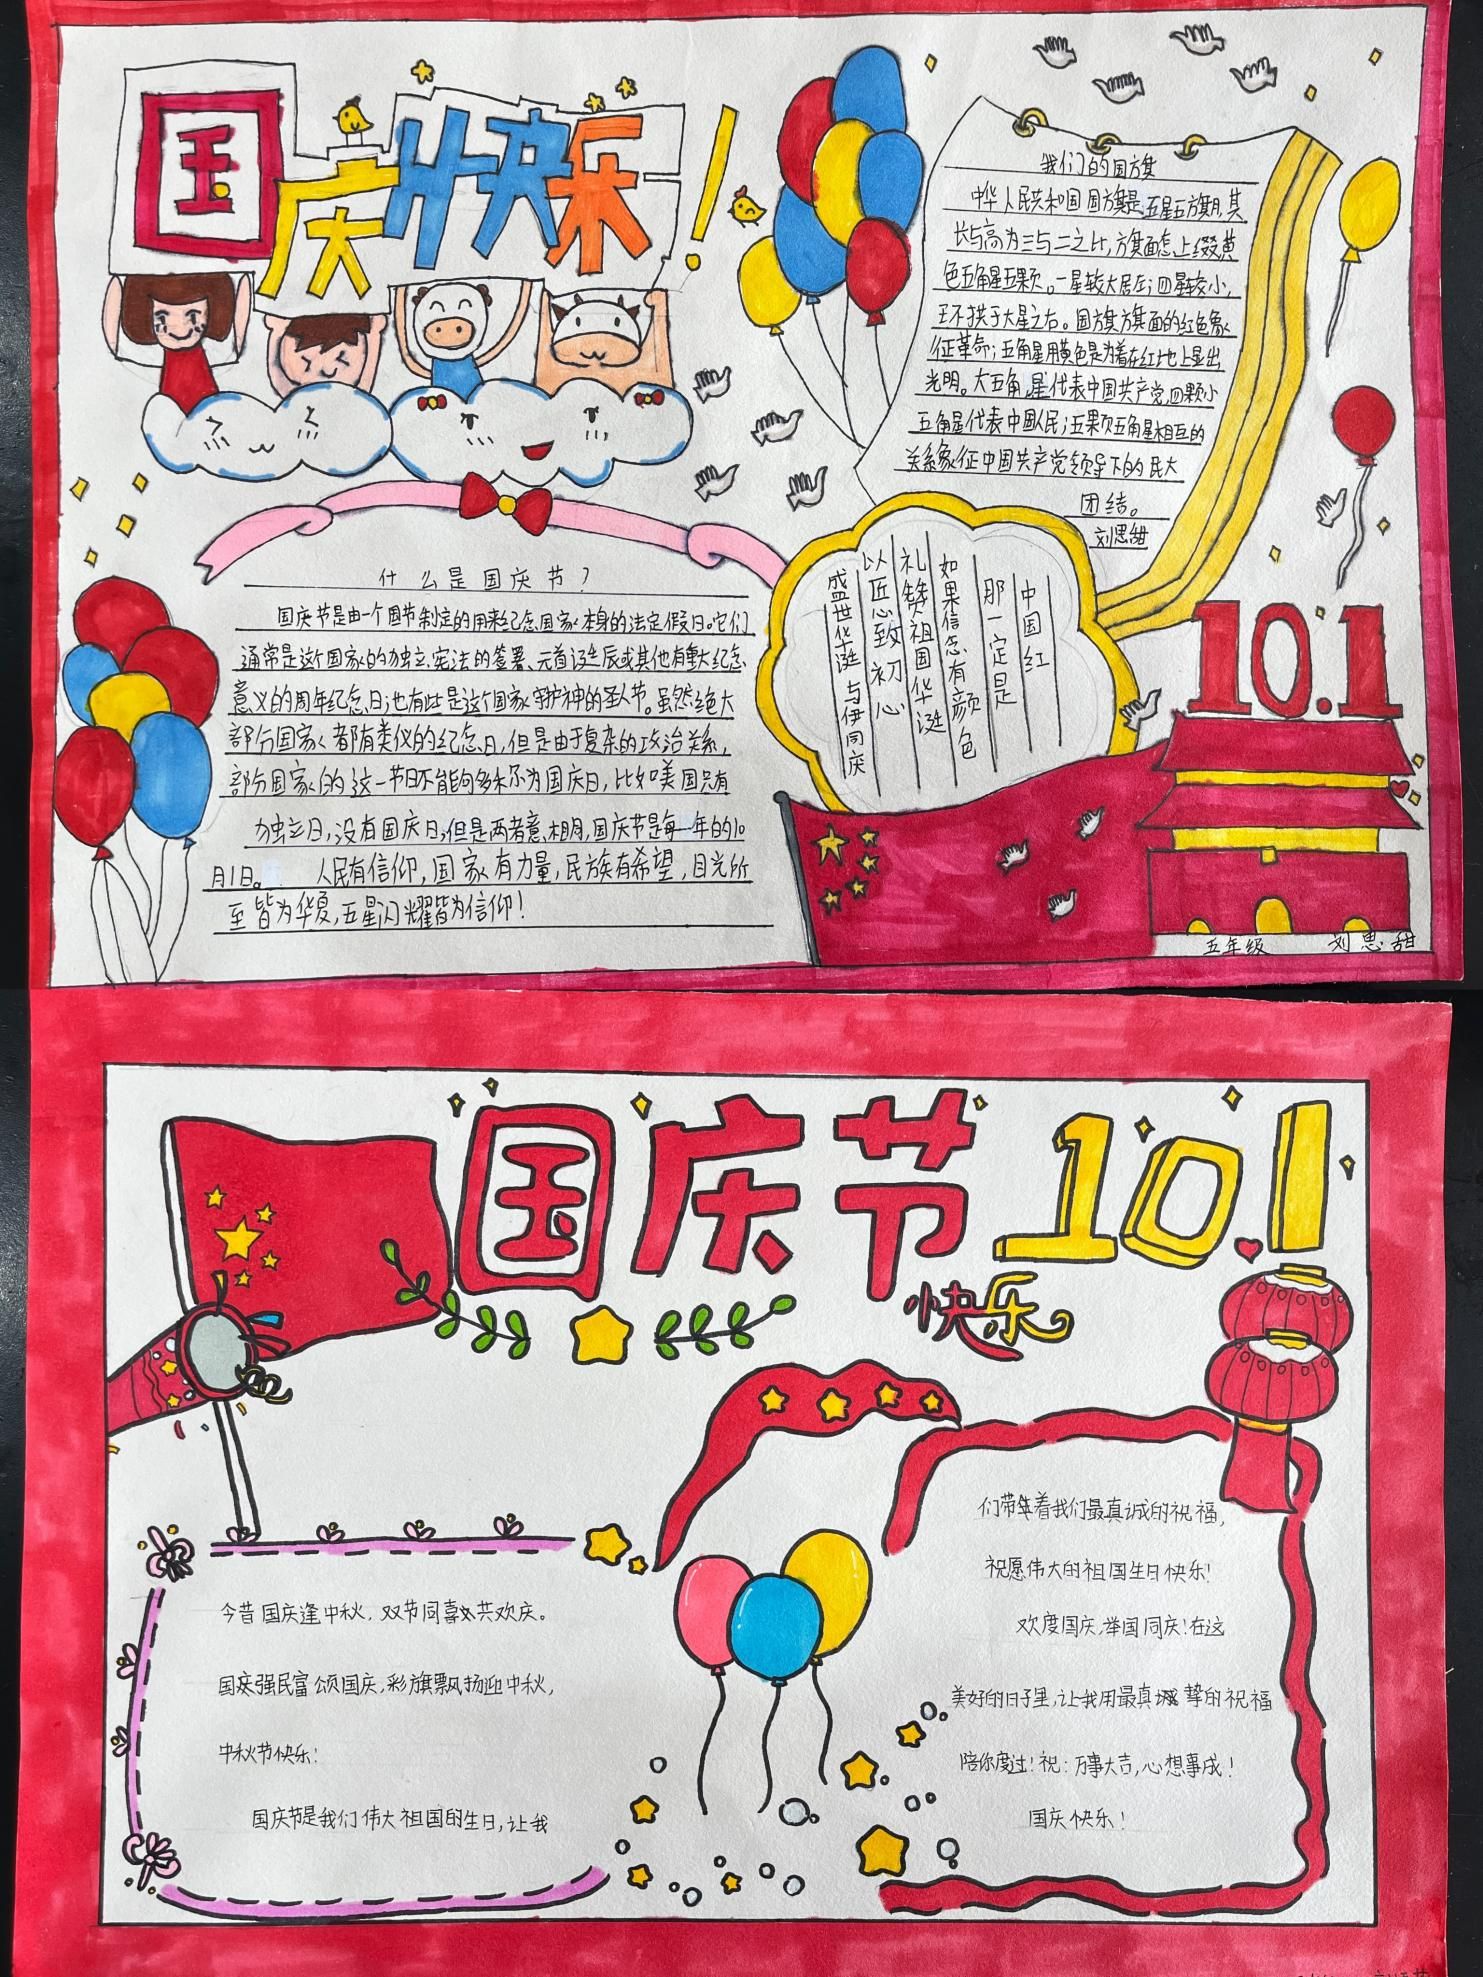 国庆快乐!
我们的国旗
中华人民共和国国旗是五星五旗,其
长与高为三与二之比,旗面左上缀黄
色五角星五颗。一星较大居左;四星较小,
环拱于大星之右。国旗旗面的红色象
征革命;五角星用黄色是为着在红地上显出
光明。大五角星代表中国共产党,四颗小
五角星代表中国人民;五颗五角星相互的
关系象征中国共产党领导下的民大
团结。
刘思甜
中国红
那一定是
如果信念有颜色
礼赞祖国华诞
以匠心致初心
盛世华诞与伊同庆
什么是国庆节?
国庆节是由一个国节制定的用来纪念国家本身的法定假日。它们
通常是这个国家的独立、宪法的签署、元首诞辰或其他有重大纪念
意义的周年纪念日;也有些是这个国家守护神的圣人节。虽然绝大
部分国家都有类似的纪念日,但是由于复杂的政治关系,
部分国家的这一节日不能够称为国庆日,比如美国只有
独立日,没有国庆日,但是两者意义相同,国庆节是每一年的10
月1日。 人民有信仰,国家有力量,民族有希望,目光所
至皆为华夏,五星闪耀皆为信仰!
10.1
五年级 刘思甜
国庆节 10.1
快乐
今昔国庆逢中秋,双节同喜共欢庆。
国庆强民富颂国庆,彩旗飘扬迎中秋,
中秋节快乐!
国庆节是我们伟大祖国的生日,让我
们带着我们最真诚的祝福,
祝愿伟大的祖国生日快乐!
欢度国庆,举国同庆!在这
美好的日子里,让我用最真诚挚的祝福
陪你度过!祝:万事大吉,心想事成!
国庆快乐!